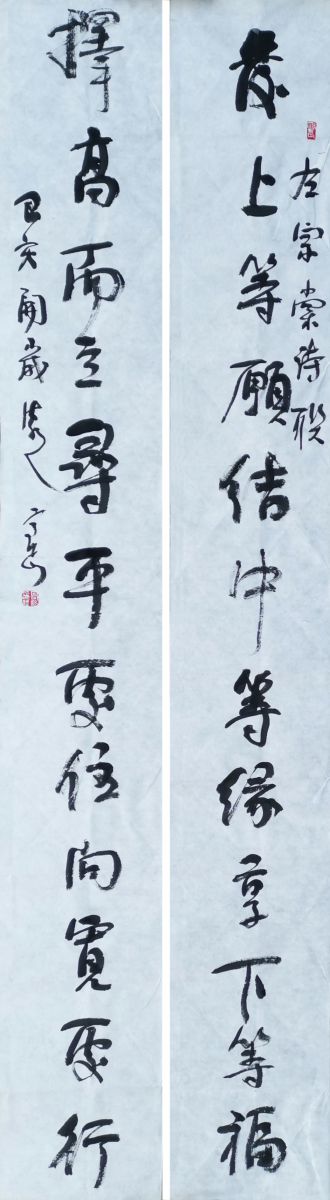 發上等願結中等緣享下等福
左宗棠詩聯
擇高而立尋平處住向寬處行
己亥開歲